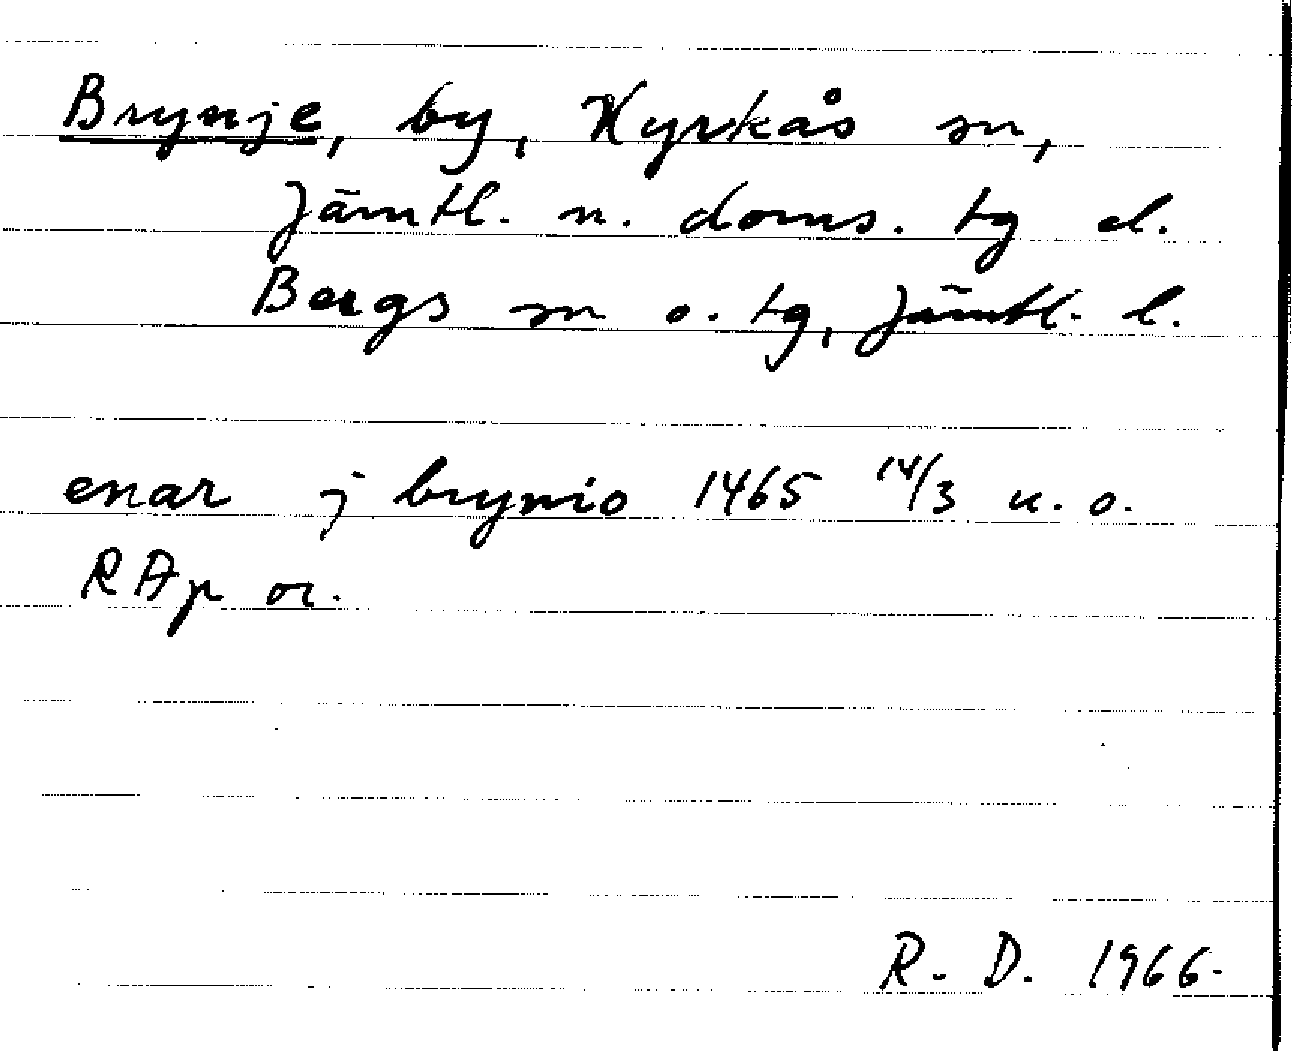 Brynje, by, Kyrkås sn,
Jämtl. n. doms. tg el.
Bergs sn o. tg, Jämtl. l.
enar j brynio 1465 14/3 u. o.
RAp or.
R. D. 1966.